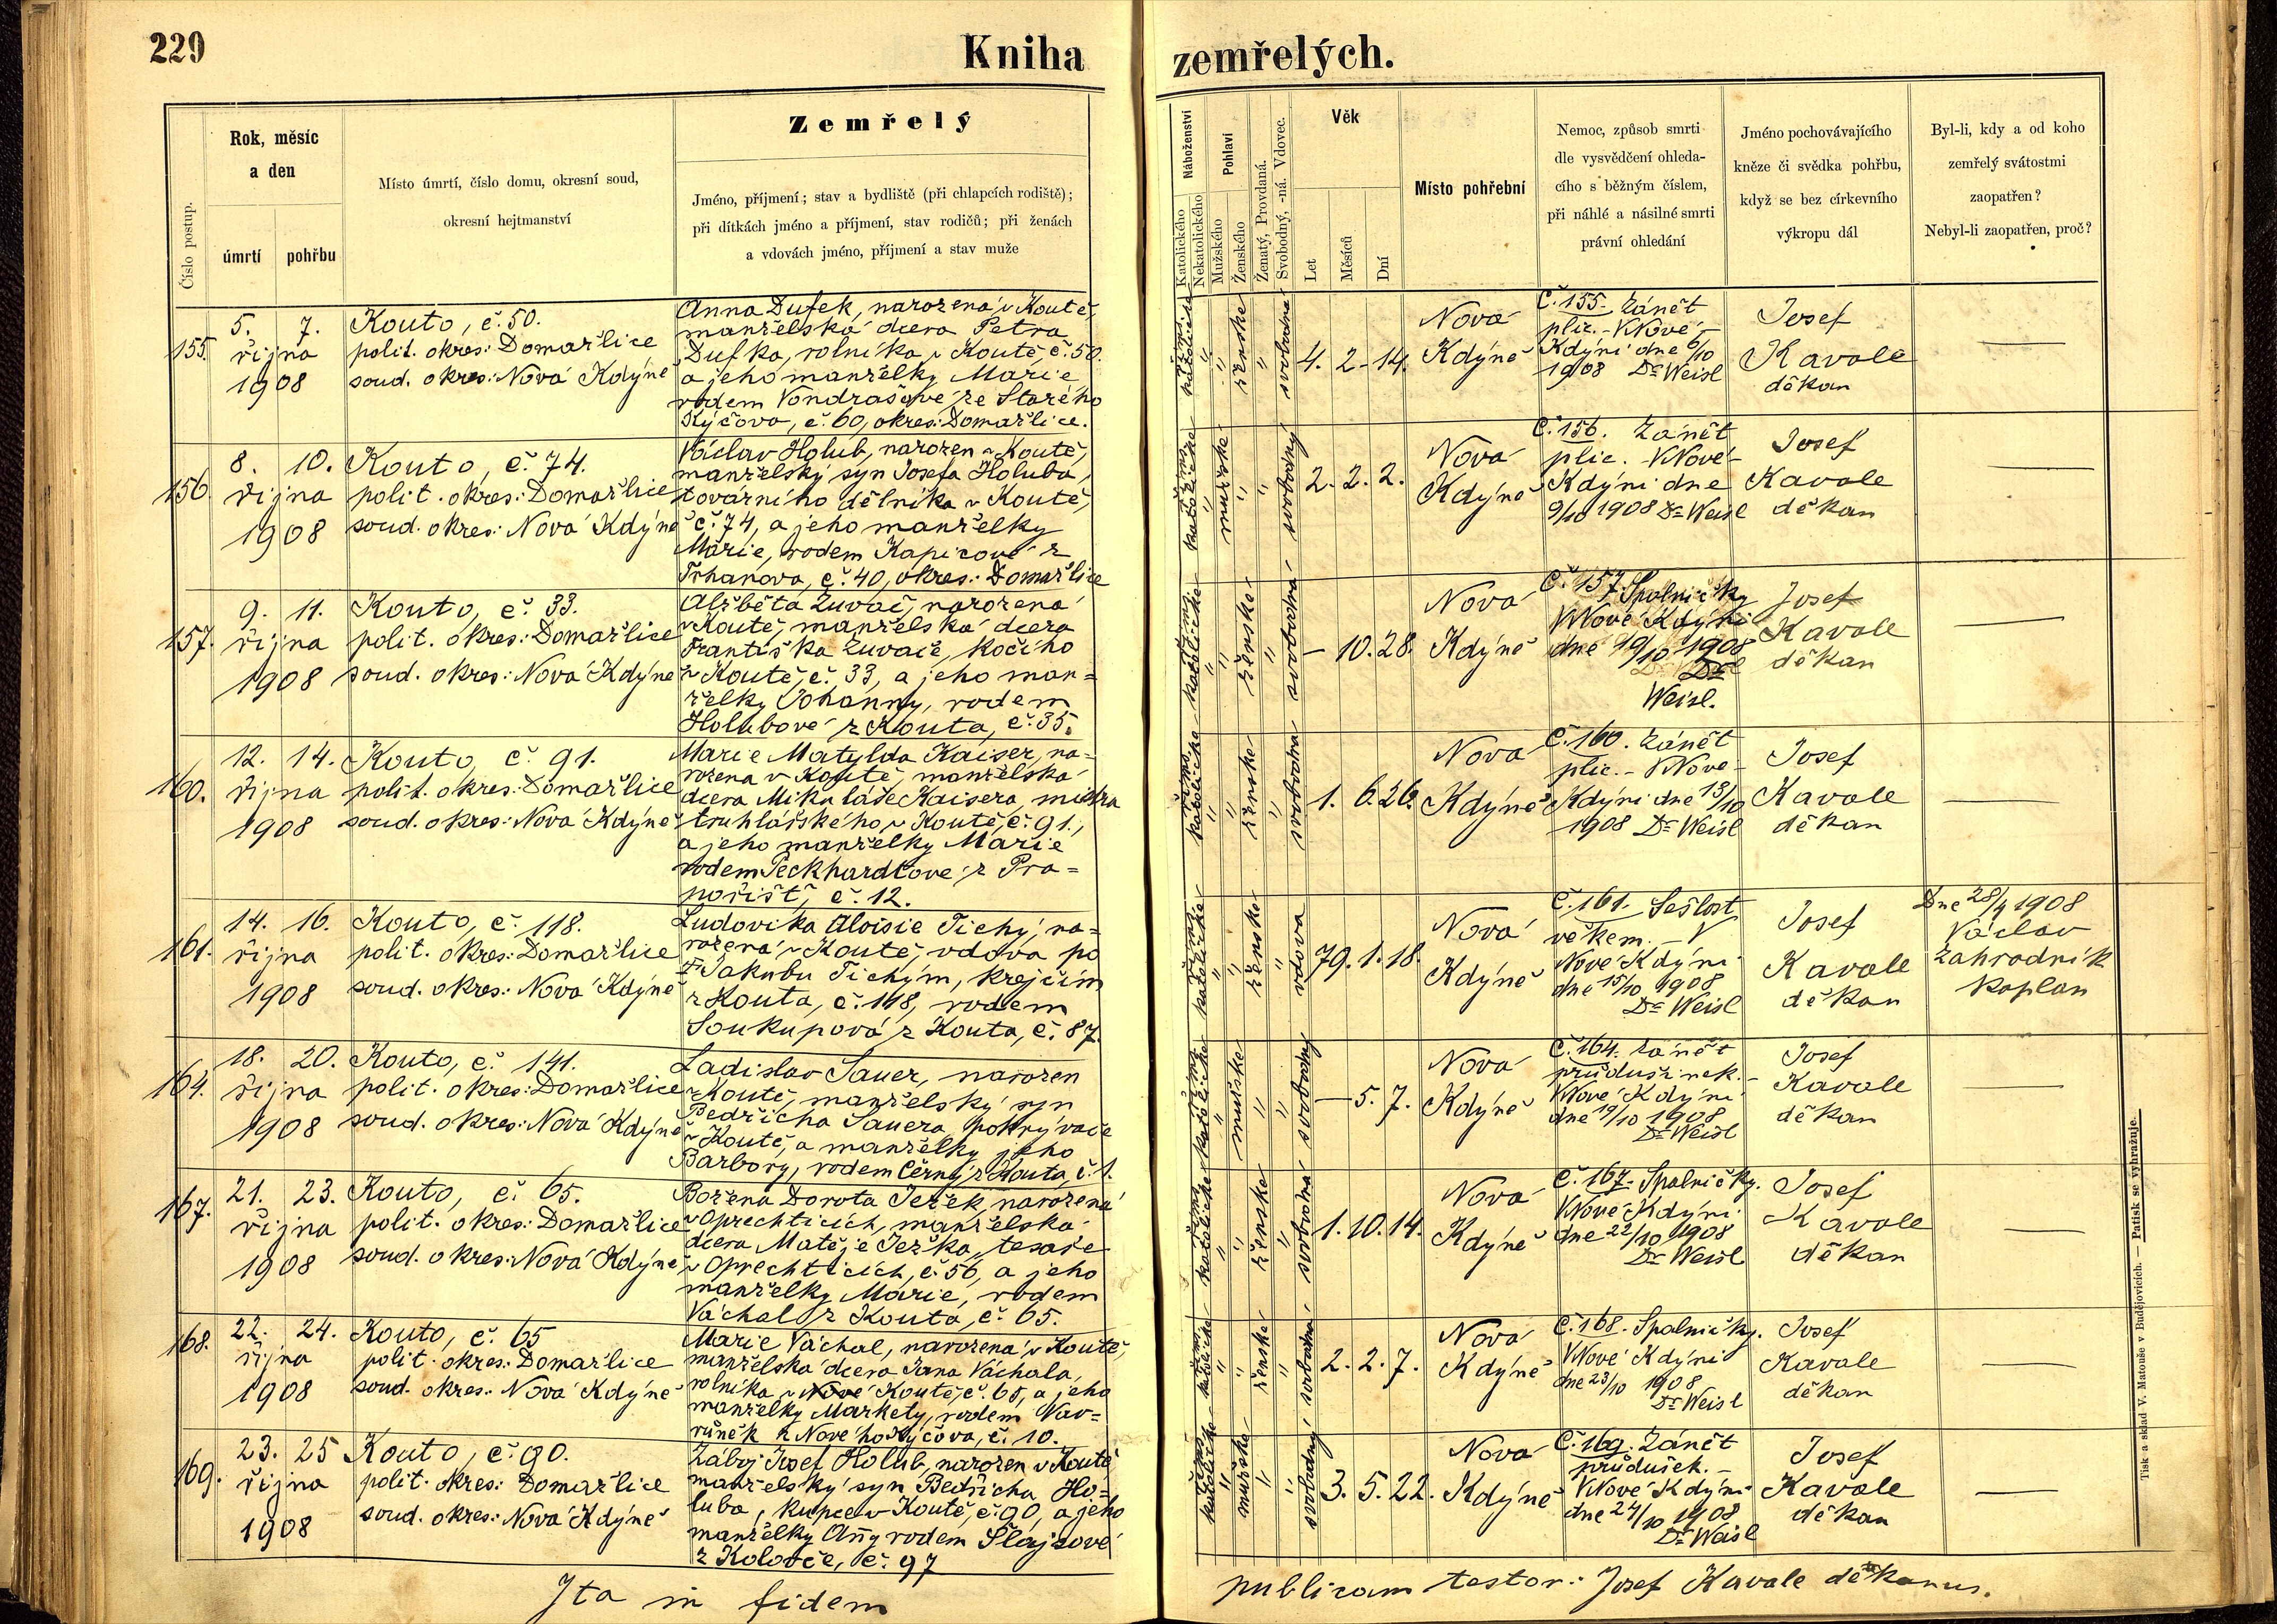 229
Kniha
zemřelých.
Číslo postup.
Rok, měsíc
a den
úmrtí
pohřbu
Místo úmrtí, číslo domu, okresní soud,
okresní hejtmanství
Zemřelý
Jméno, příjmení; stav a bydliště (při chlapcích rodiště);
při dítkách jméno a příjmení, stav rodičů; při ženách
a vdovách jméno, příjmení a stav muže
Náboženství
Katolického
Nekatolického
Pohlaví
Mužského
Ženského
Ženatý, Provdaná.
Svobodný, -ná. Vdovec.
Věk
Let
Měsíců
Dní
Místo pohřební
Nemoc, způsob smrti
dle vysvědčení ohleda-
cího s běžným číslem,
při náhlé a násilné smrti
právní ohledání
Jméno pochovávajícího
kněze či svědka pohřbu,
když se bez církevního
výkropu dál
Byl-li, kdy a od koho
zemřelý svátostmi
zaopatřen?
Nebyl-li zaopatřen, proč?
155.
5. 7.
října
1908
Kouto, č. 50.
polit. okres: Domažlice
soud. okres: Nová Kdýně
Anna Dufek, narozená v Koutě,
manželská dcera Petra
Dufka, rolníka v Koutě, č. 50.
a jeho manželky Marie
rodem Vondrašové ze Starého
Kýčova, č. 60, okres: Domažlice.
říms.
katolické
ženské
svobodná
4. 2 - 14.
Nová
Kdýně
Č. 155. Zánět
plic. - V Nové -
Kdýni dne 6/10
1908 Dr Weisl
Josef
Kavale
děkan
—
156.
8. 10.
října
1908
Kouto, č. 74.
polit. okres: Domažlice
soud. okres: Nová Kdýně
Václav Holub, narozen v Koutě,
manželský syn Josefa Holuba,
továrního dělníka v Koutě,
č. 74, a jeho manželky
Marie, rodem Kapicové z
Trhanova, č. 40, okres: Domažlice
říms.
katolické
mužské
svobodný
2. 2. 2.
Nová
Kdýně
Č. 156. Zánět
plic. V Nové -
Kdýni dne
9/10 1908 Dr Weisl
Josef
Kavale
děkan
—
157.
9. 11.
října
1908
Kouto, č. 33.
polit. okres: Domažlice
soud. okres: Nová Kdýně
Alžběta Zuvač, narozená
v Koutě, manželská dcera
Františka Zuvače, kočího
v Koutě, č. 33, a jeho man=
želky Johanny, rodem
Holubové z Kouta, č. 35.
říms.
katolické
ženské
svobodná
— 10. 28.
Nová
Kdýně
Č. 157. Spalničky
V Nové Kdýni
dne 19/10 1908
Dr
Weisl.
Josef
Kavale
děkan
—
160.
12. 14.
října
1908
Kouto, č. 91.
polit. okres: Domažlice
soud. okres: Nová Kdýně
Marie Matylda Kaiser, na=
rozena v Koutě, manželská
dcera Mikuláše Kaisera, mistra
truhlářského v Koutě, č. 91.,
a jeho manželky Marie
rodem Peckhardtové z Pra=
pořišť, č. 12.
říms.
katolické
ženské
svobodná
1. 6. 26.
Nová
Kdýně
Č. 160. Zánět
plic. - V Nové -
Kdýni dne 13/10
1908 Dr Weisl
Josef
Kavale
děkan
—
161.
14. 16.
října
1908
Kouto, č. 118.
polit. okres: Domažlice
soud. okres: Nová Kdýně
Ludovika Aloisie Tichý, na=
rozená v Koutě, vdova po
Jakubu Tichým, krejčím
z Kouta, č. 118, rodem
Soukupová z Kouta, č. 87.
říms.
katolické
ženské
vdova
79. 1. 18.
Nová
Kdýně
Č. 161. Sešlost
věkem. - V
Nové Kdýni
dne 15/10 1908
Dr Weisl
Josef
Kavale
děkan
Dne 28/9 1908
Václav
Zahradník
kaplan
164.
18. 20.
října
1908
Kouto, č. 141.
polit. okres: Domažlice
soud. okres: Nová Kdýně
Ladislav Sauer, narozen
v Koutě, manželský syn
Bedřicha Sauera, pokrývače
v Koutě, a manželky jeho
Barbory, rodem Černý z Kouta, č. 1.
říms.
katolické
mužské
svobodný
— 5. 7.
Nová
Kdýně
Č. 164. Zánět
průdušinek. -
V Nové Kdýni
dne 19/10 1908
Dr Weisl
Josef
Kavale
děkan
—
167.
21. 23.
října
1908
Kouto, č. 65.
polit. okres: Domažlice
soud. okres: Nová Kdýně
Božena Dorota Ježek, narozená
v Oprechticích, manželská
dcera Matěje Ježka, tesaře
v Oprechticích, č. 56, a jeho
manželky Marie, rodem
Váchal z Kouta, č. 65.
říms.
katolické
ženské
svobodná
1. 10. 14.
Nová
Kdýně
Č. 167. Spalničky.
V Nové Kdýni
dne 22/10 1908
Dr Weisl
Josef
Kavale
děkan
—
168.
22. 24.
října
1908
Kouto, č. 65
polit. okres: Domažlice
soud. okres: Nová Kdýně
Marie Váchal, narozená v Koutě,
manželská dcera Jana Váchala,
rolníka v Nové Koutě, č. 65, a jeho
manželky Markety, rodem Vav=
růněk z Nového Kýčova, č. 10.
říms.
katolické
ženské
svobodná
2. 2. 7.
Nová
Kdýně
Č. 168. Spalničky.
V Nové Kdýni
dne 23/10 1908
Dr Weisl
Josef
Kavale
děkan
—
169.
23. 25
října
1908
Kouto, č. 90.
polit. okres: Domažlice
soud. okres: Nová Kdýně
Záboj Josef Holub, narozen v Koutě
manželský syn Bedřicha Ho=
luba, kupce v Koutě, č. 90, a jeho
manželky Anny rodem Šlajsové
z Koloveče, č. 97
říms.
katolické
mužské
svobodný
3. 5. 22.
Nová
Kdýně
Č. 169. Zánět
průdušek. -
V Nové Kdýni
dne 24/10 1908
Dr Weisl
Josef
Kavale
děkan
—
Ita in fidem
publicam testor: Josef Kavale děkanus.
Tisk a sklad V. Matouše v Budějovicích. — Patisk se vyhražuje.